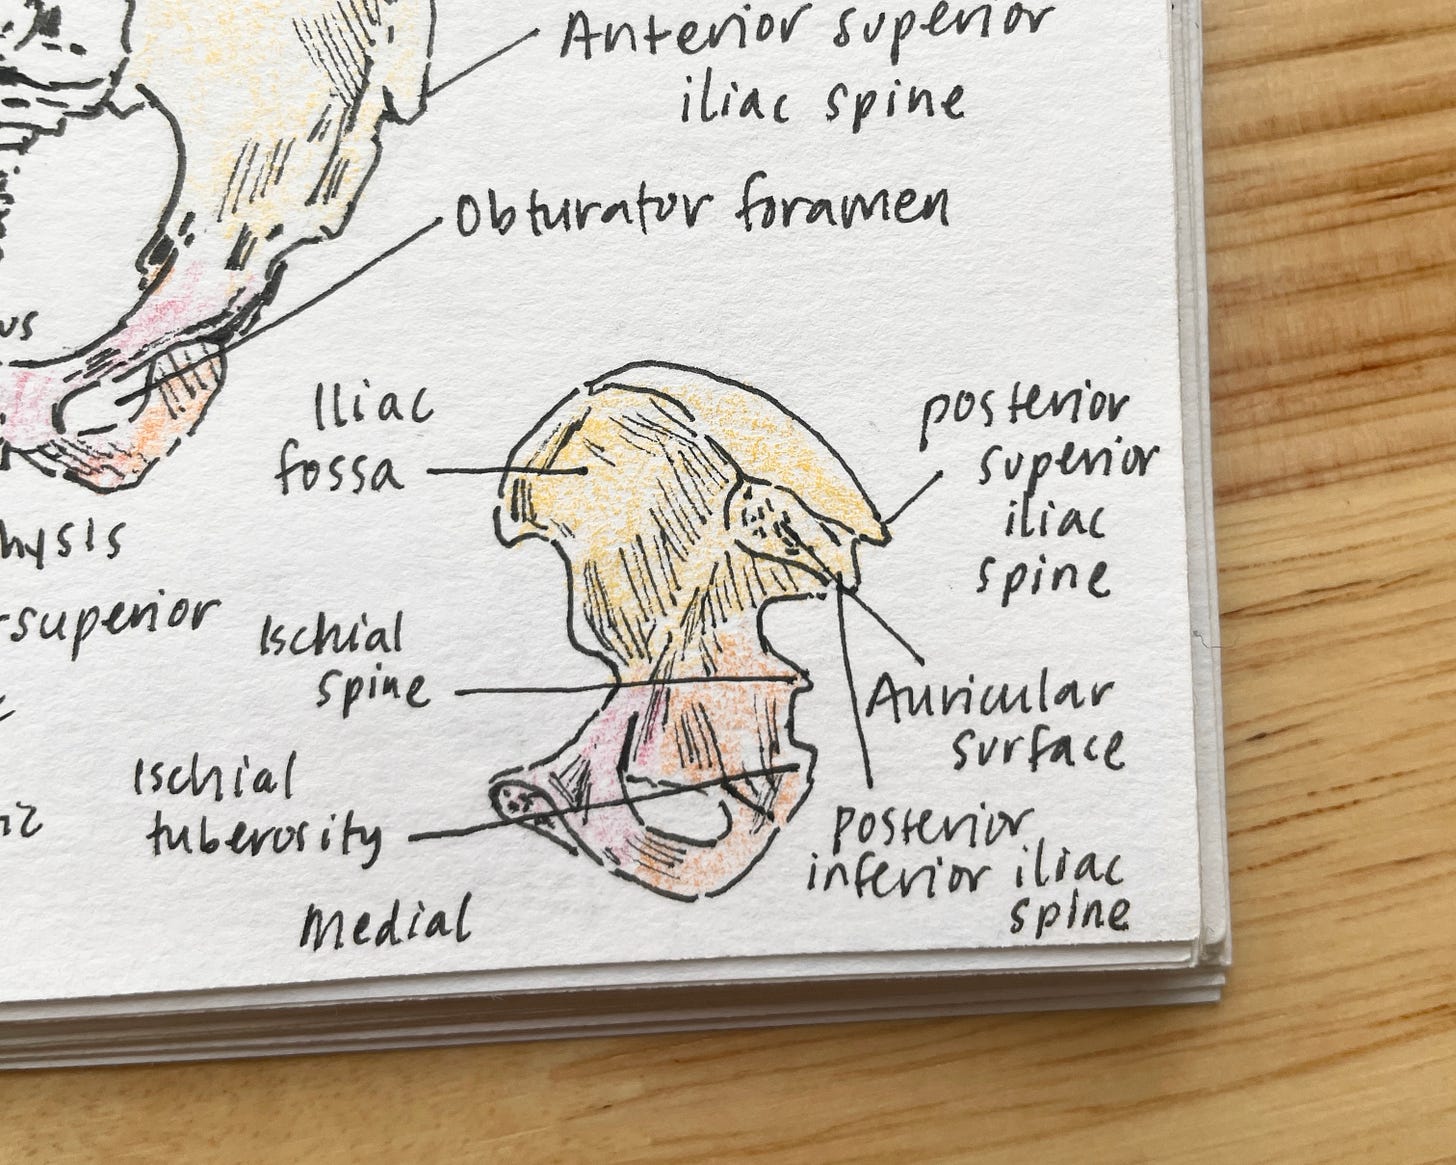 Anterior superior
iliac spine
Obturator foramen
Iliac
fossa
posterior
superior
iliac
spine
-superior
Ischial
spine
Auricular
surface
Ischial
tuberosity
posterior
inferior iliac
spine
Medial